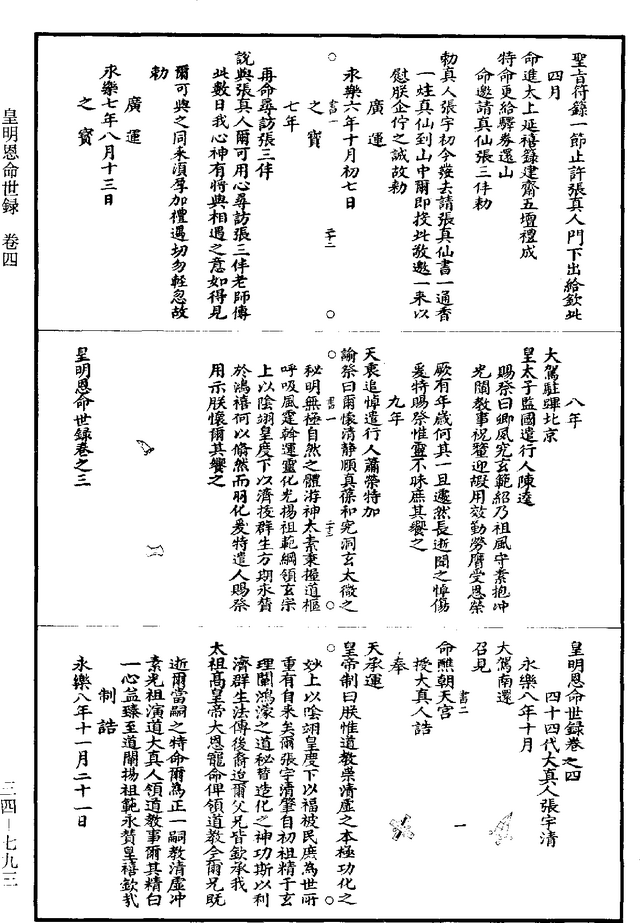 聖旨符籙一節止許張真人門下出給欽此
四月
命進太上延禧籙建齋五壇禮成
特命更給驛券還山
命邀請真仙張三仹勅
勅真人張宇初今發去請張真仙書一通香
一炷真仙到山中爾即投此敬邀一來以
慰朕企佇之誠故勅
廣運
永樂六年十月初七日
之寶
○ 書一 二十二 ○
七年
再命尋訪張三仹
說與張真人爾可用心尋訪張三仹老師傳
此數日我心神有將與相遇之意如得見
爾可與之同來須厚加禮遇切勿輕忽故
勅
廣運
永樂七年八月十三日
之寶
八年
大駕駐蹕北京
皇太子監國遣行人陳逵
賜祭曰卿夙究玄範紹乃祖風守素抱冲
光闡教事祝釐迎嘏用效勤勞膺受恩榮
厥有年歲何其一旦遽然長逝聞之悼傷
爰特賜祭惟靈不昧庶其饗之
九年
天衷追悼遣行人蕭榮特加
諭祭曰爾懷清靜頤真葆和究洞玄太微之
○ 書一 二十三 ○
秘明無極自然之體游神太素秉握道樞
呼吸風霆斡運靈化光揚祖範綱領玄宗
上以陰翊皇度下以濟拔群生方期永贊
於鴻禧何以翛然而羽化爰特遣人賜祭
用示朕懷爾其饗之
皇明恩命世録卷之三
皇明恩命世録卷之四
四十四代大真人張宇清
永樂八年十月
大駕南還
召見
命醮朝天宮
書二 一
授大真人誥
奉
天承運
皇帝制曰朕惟道教崇清虛之本極功化之
○ ○
妙上以陰翊皇度下以福被民庶為世所
重有自来矣爾張宇清肇自初祖精于玄
理闡鴻濛之道秘替造化之神功斯以利
濟群生法傳後裔迨爾父兄皆欽承我
太祖高皇帝大恩寵命俾領道教今爾兄既
逝爾當嗣之特命爾為正一嗣教清虛冲
素光祖演道大真人領道教事爾其精白
一心益臻至道闡揚祖範永贊皇禧欽哉
制誥
永樂八年十一月二十一日
皇明恩命世録 卷四
三四—七九三